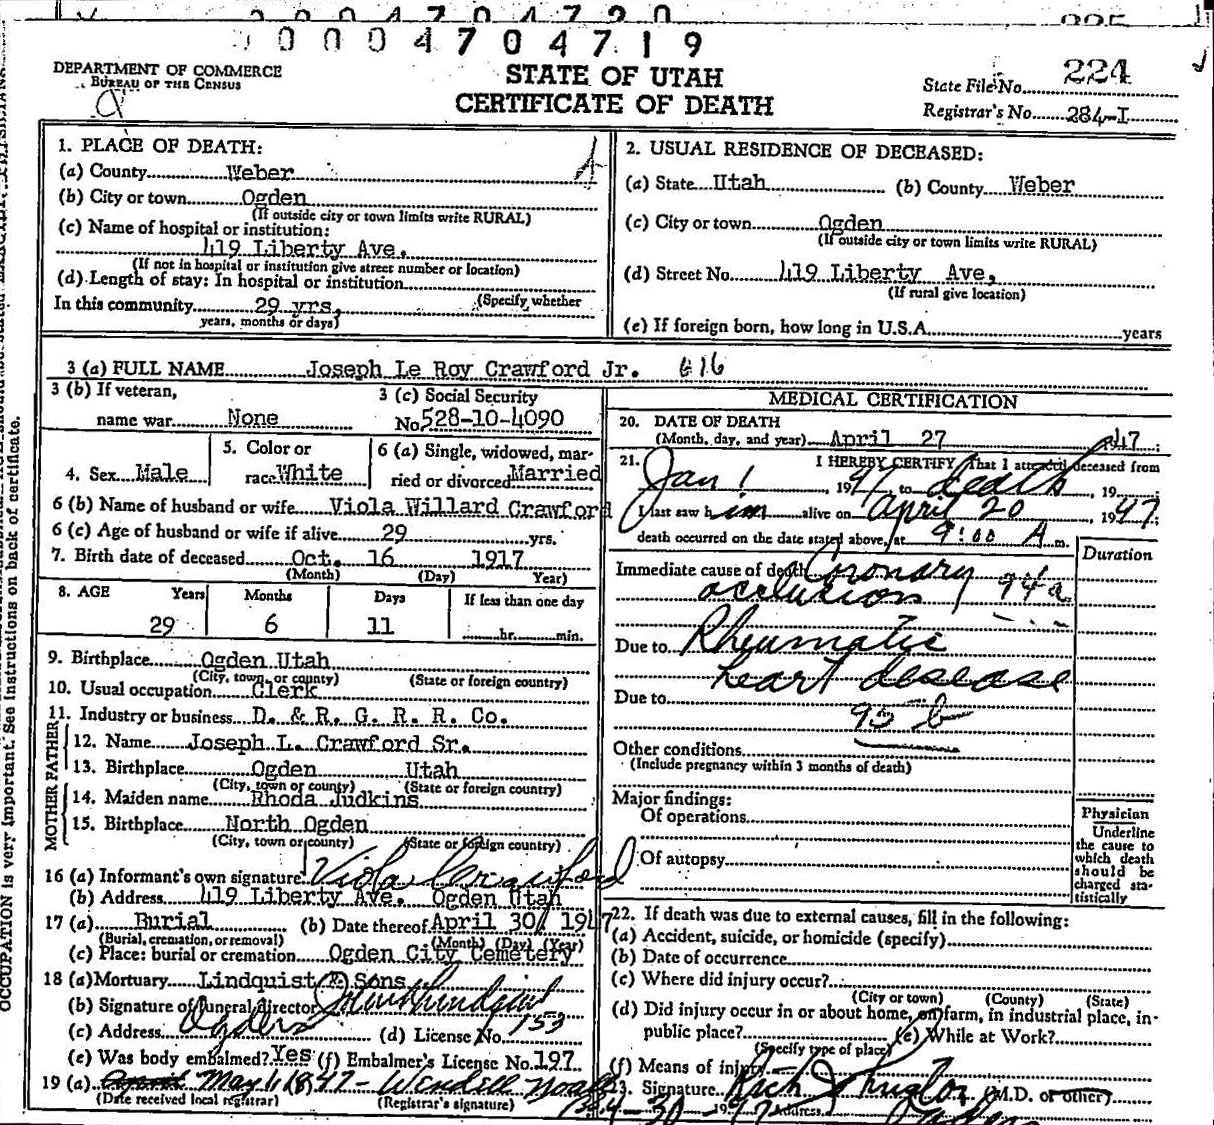 0 0 0 4 7 0 4 7 1 9
DEPARTMENT OF COMMERCE
BUREAU OF THE CENSUS
STATE OF UTAH
CERTIFICATE OF DEATH
State File No. 224
Registrar's No. 284-I
1. PLACE OF DEATH:
(a) County Weber
(b) City or town Ogden
(If outside city or town limits write RURAL)
(c) Name of hospital or institution:
419 Liberty Ave.
(If not in hospital or institution give street number or location)
(d) Length of stay: In hospital or institution
(Specify whether
In this community 29 yrs.
years, months or days)
2. USUAL RESIDENCE OF DECEASED:
(a) State Utah (b) County Weber
(c) City or town Ogden
(If outside city or town limits write RURAL)
(d) Street No. 419 Liberty Ave,
(If rural give location)
(e) If foreign born, how long in U.S.A. years
3 (a) FULL NAME Joseph Le Roy Crawford Jr. 616
3 (b) If veteran,
name war None
3 (c) Social Security
No. 528-10-4090
4. Sex Male
5. Color or
race White
6 (a) Single, widowed, mar-
ried or divorced Married
6 (b) Name of husband or wife Viola Willard Crawford
6 (c) Age of husband or wife if alive 29 yrs.
7. Birth date of deceased Oct. 16 1917
(Month) (Day) Year)
8. AGE Years Months Days If less than one day
29 6 11 hr. min.
9. Birthplace Ogden Utah
(City, town, or county) (State or foreign country)
10. Usual occupation Clerk
11. Industry or business D. & R. G. R. R. Co.
FATHER
12. Name Joseph L. Crawford Sr.
13. Birthplace Ogden Utah
(City, town or county) (State or foreign country)
MOTHER
14. Maiden name Rhoda Judkins
15. Birthplace North Ogden
(City, town or county) (State or foreign country)
16 (a) Informant's own signature Viola Crawford
(b) Address 419 Liberty Ave. Ogden Utah
17 (a) Burial (b) Date thereof April 30/ 1947
(Burial, cremation, or removal) (Month) (Day) (Year)
(c) Place: burial or cremation Ogden City Cemetery
18 (a) Mortuary Lindquist & Sons
(b) Signature of funeral director
(c) Address Ogden (d) License No. 153
(e) Was body embalmed? Yes (f) Embalmer's License No. 197
19 (a) May 1947 - Wendell Noall
(Date received local registrar) (Registrar's signature)
MEDICAL CERTIFICATION
20. DATE OF DEATH
(Month, day, and year) April 27 1947
21. I HEREBY CERTIFY That I attended deceased from
Jan 1, 1947 to death, 19
I last saw him alive on April 20 1947;
death occurred on the date stated above, at 9:00 A m.
Duration
Immediate cause of death Coronary
occlusion 94a
Due to Rheumatic
heart desease
Due to
95 b
Other conditions
(Include pregnancy within 3 months of death)
Major findings:
Of operations
Of autopsy
Physician
Underline
the cause to
which death
should be
charged sta-
tistically
22. If death was due to external causes, fill in the following:
(a) Accident, suicide, or homicide (specify)
(b) Date of occurrence
(c) Where did injury occur?
(City or town) (County) (State)
(d) Did injury occur in or about home, on farm, in industrial place, in-
public place? (e) While at Work?
(Specify type of place)
(f) Means of injury
23. Signature (M.D. or other)
4-30-1947 Address Ogden
OCCUPATION is very important. See instructions on back of certificate.